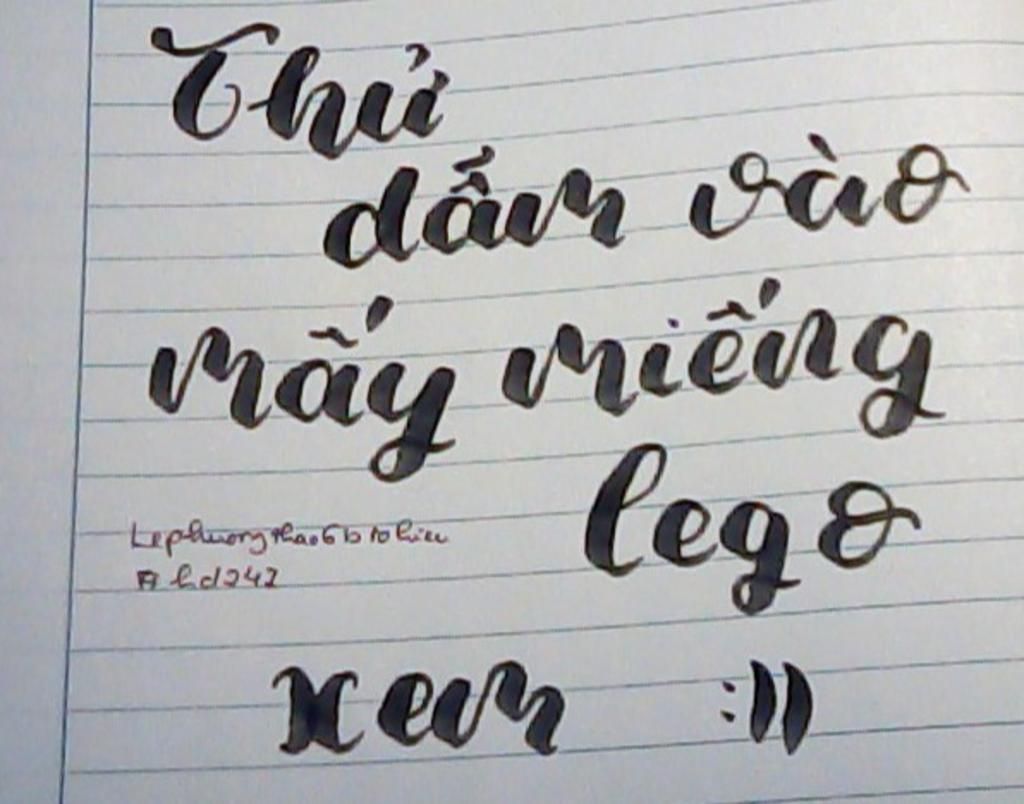 Thử
dấm vào
mấy miếng
lego
Lephuongthao6b tohieu
# hd242
xem :))